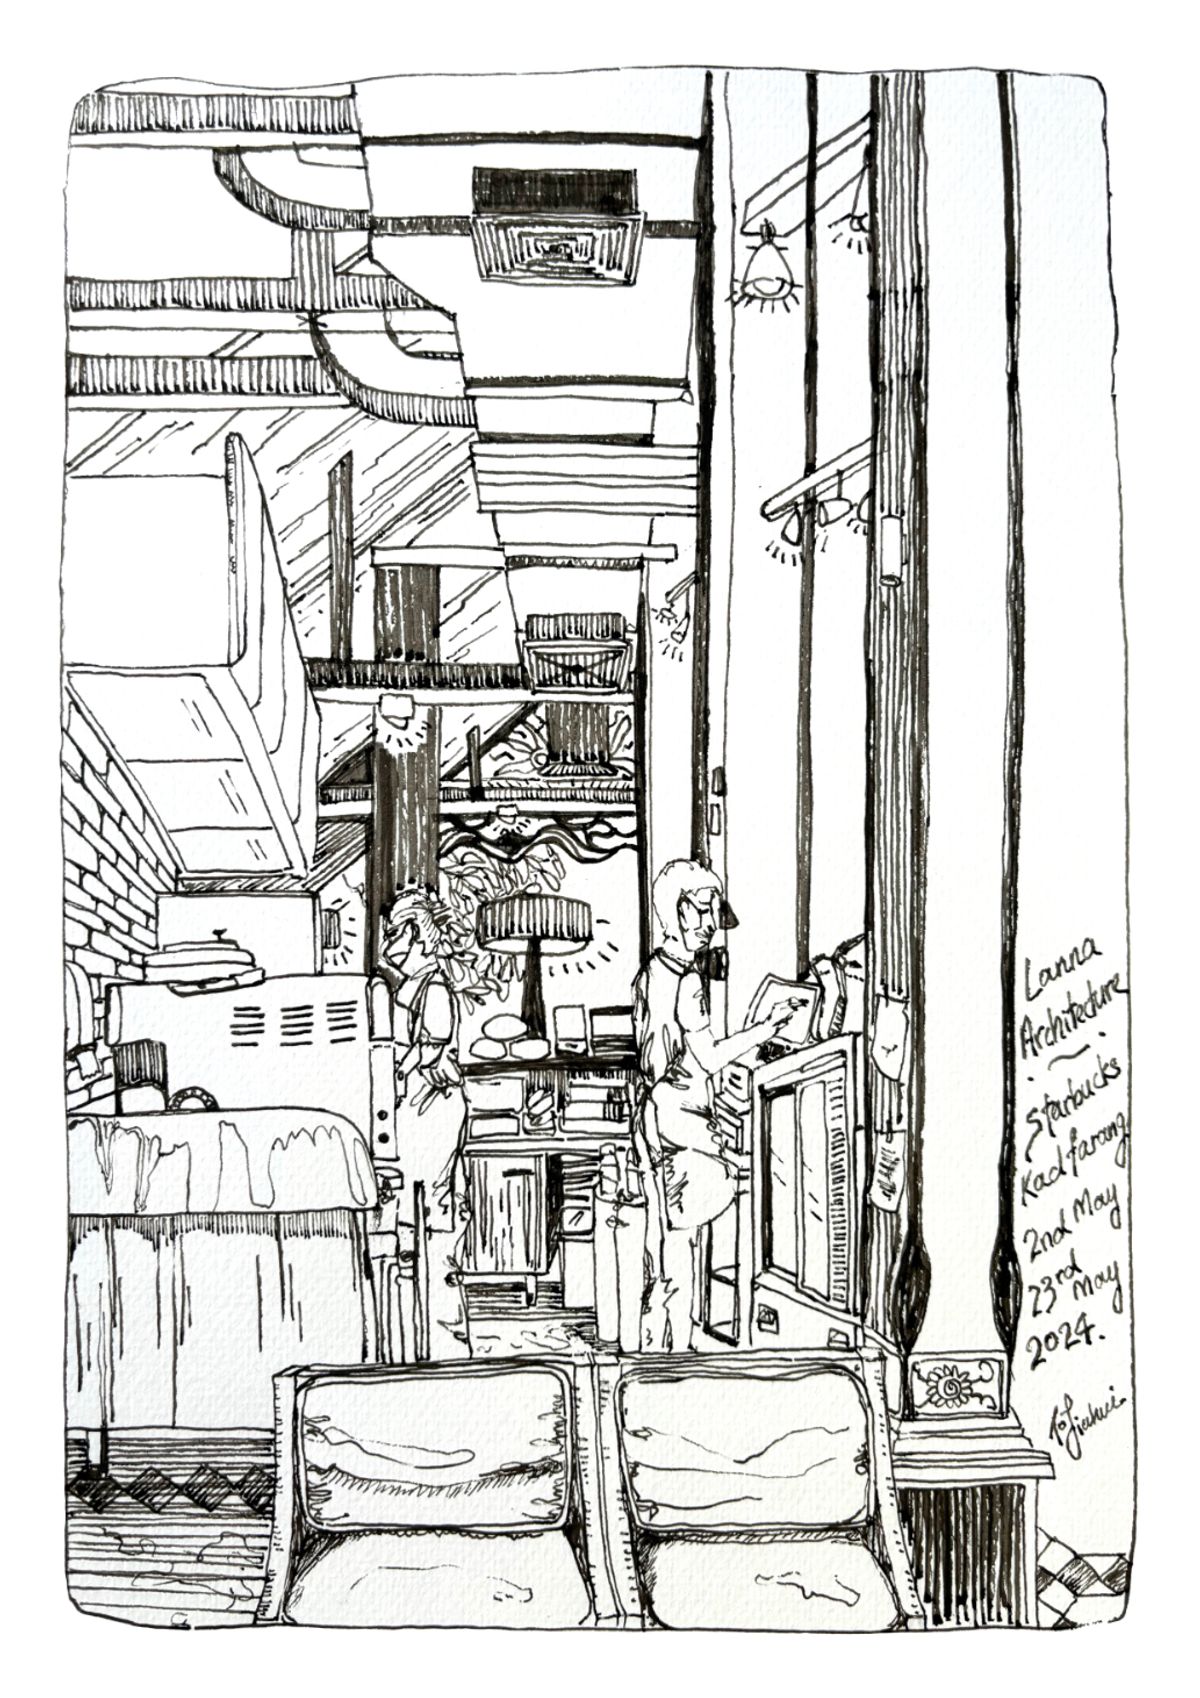 Lanna
Architecture
~
Starbucks
Kad farang
2nd May
23rd May
2024.
Jiahui